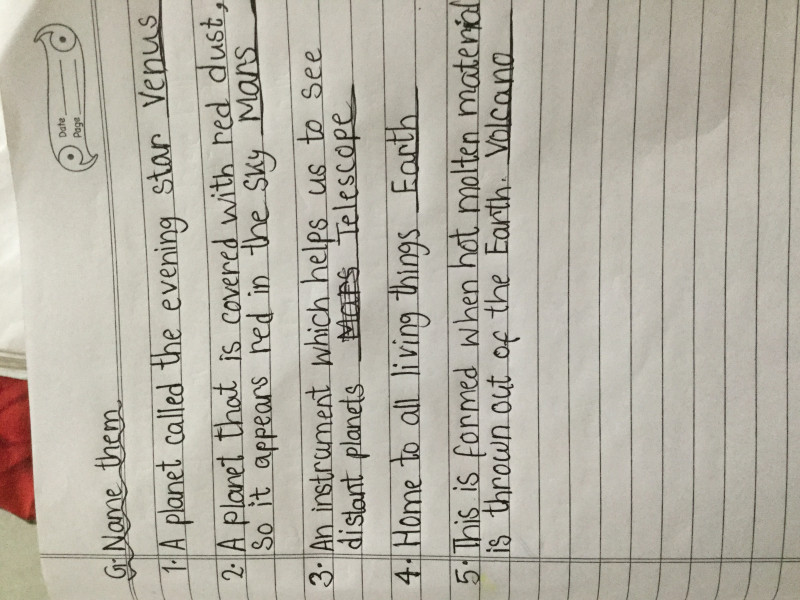 Date
Page
G. Name them
1. A planet called the evening star Venus
2. A planet that is covered with red dust,
So it appears red in the sky Mars
3. An instrument which helps us to see
distant planets Mars Telescope
4. Home to all living things Earth
5. This is formed when hot molten material
is thrown out of the Earth. Volcano